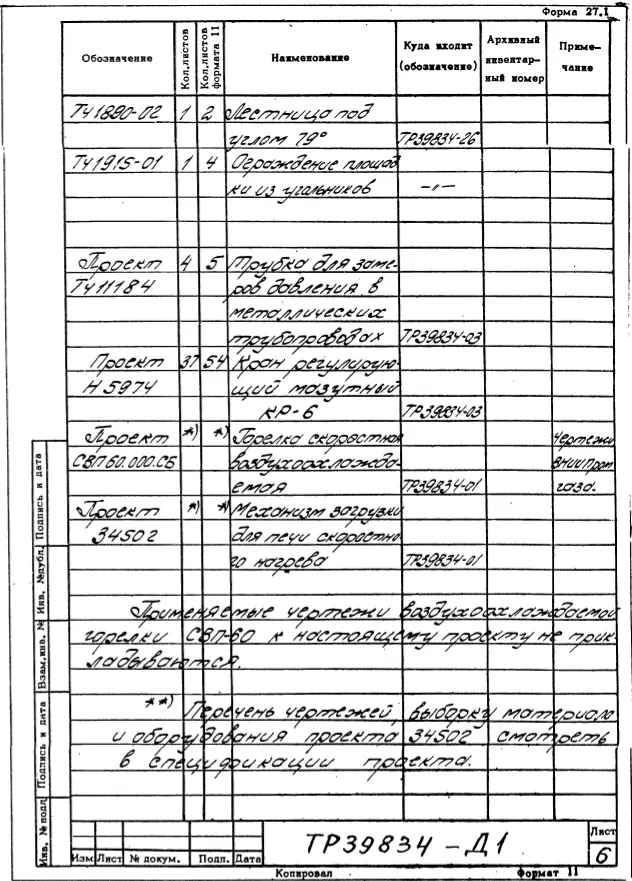 Форма 27.1
Обозначение Кол.листов Кол.листов формата 11 Наименование Куда входит (обозначение) Архивный инвентарный номер Примечание
ТЧ1890-02 1 2 Лестница под
углом 79° ТР39834-26
ТЧ1915-01 1 4 Ограждение площад
ки из угольников -"-
Проект 4 5 Трубка для заме-
ТЧ11184 ров давления в
металлических
трубопроводах ТР39834-03
Проект 37 54 Кран регулирую-
Н5974 щий мазутный
КР-6 ТР39834-03
Проект *) *) Горелка скоростная Чертежи
СВП60.000.СБ воздухоохлажда- ВНИИПром
емая ТР39834-01 газа.
Проект *) *) Механизм загрузки
34502 для печи скоростно
го нагрева ТР39834-01
Применяемые чертежи воздухоохлаждаемой
горелки СВП-60 к настоящему проекту не прик
ладываются.
**) Перечень чертежей, выборку материала
и оборудования проекта 34502 смотреть
в спецификации проекта.
Инв. № подл. Подпись и дата Взам.инв. № Инв. №дубл. Подпись и дата
ТР39834-Д1
Лист
6
Изм Лист № докум. Подп. Дата
Копировал Формат 11